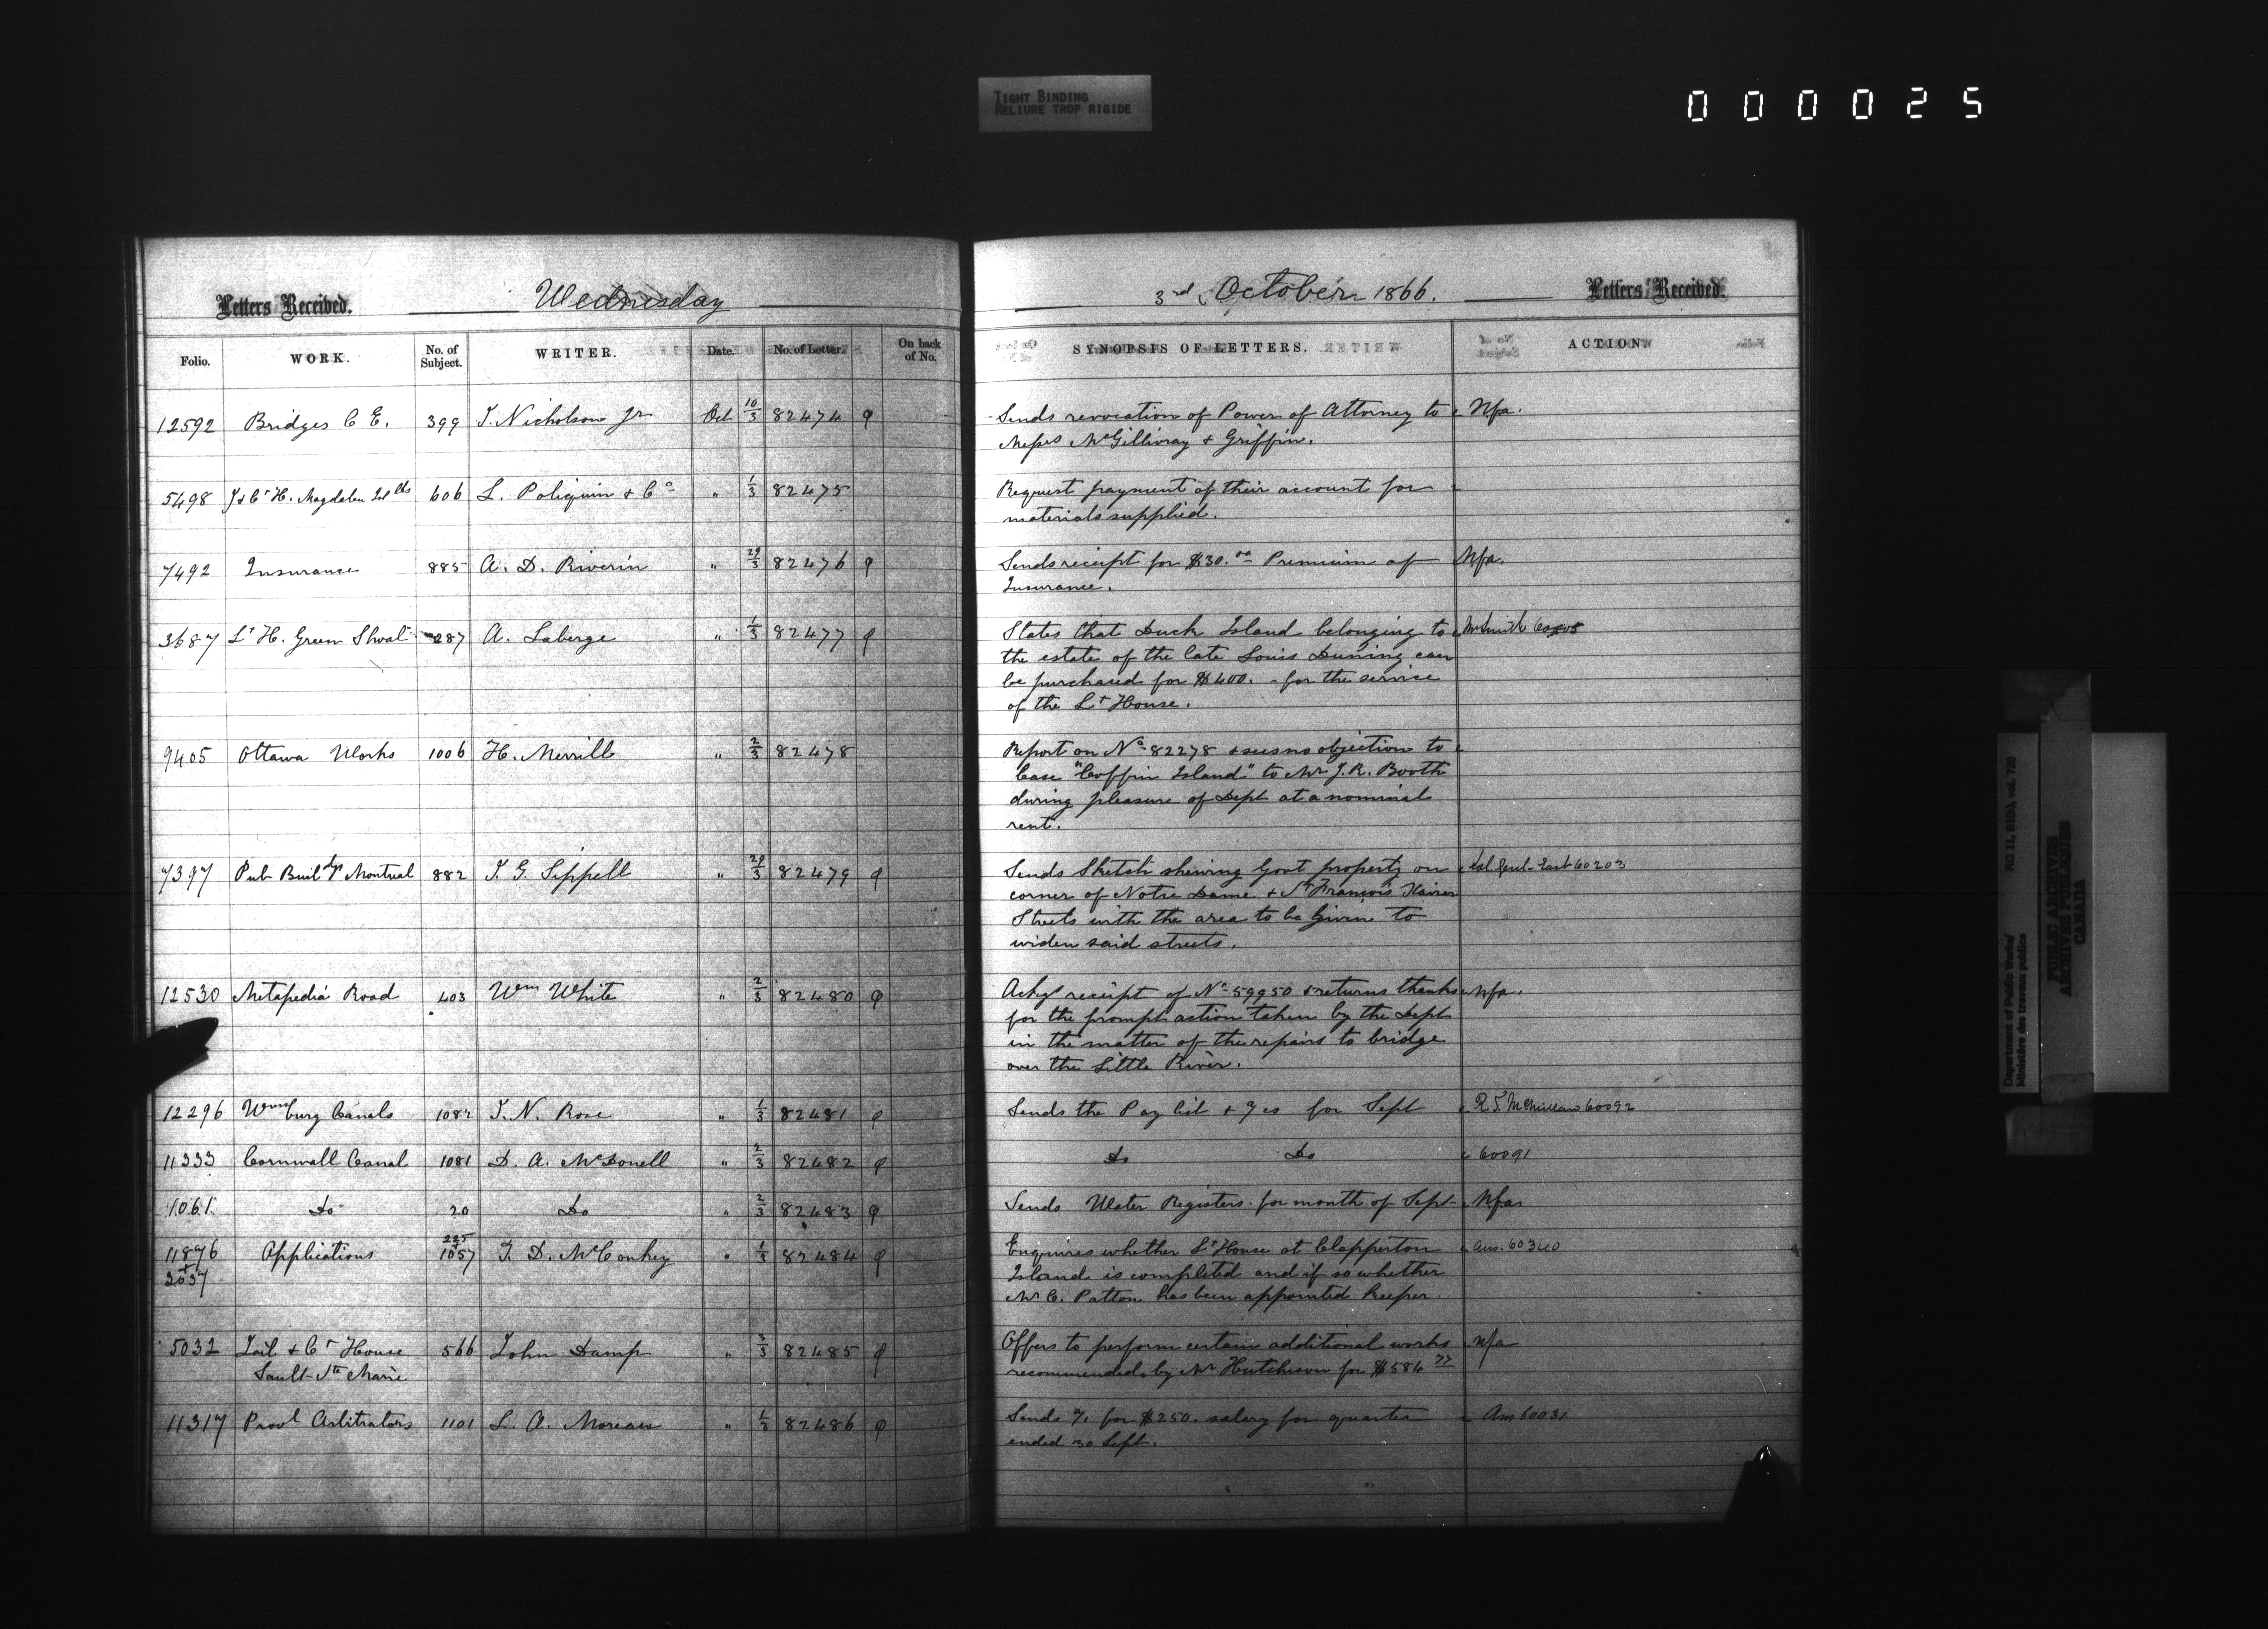 TIGHT BINDING
RELIURE TROP RIGIDE
000025
Letters Received. Wednesday
Folio. WORK. No. of Subject. WRITER. Date. No. of Letter. On back of No.
12592 Bridges C E. 399 T. Nicholson Jr Oct 10/3 82474
5498 L. Poliquin & Co 606 " 1/3 82475
7492 Insurance 885 A. D. Riverin " 29/3 82476
3687 Lt H. Green Shoal 287 A. Laberge " 1/3 82477
9405 Ottawa Works 1006 H. Merrill " 2/3 82478
7397 Pub Buildgs Montreal 882 T. G. Sippell " 29/3 82479
12530 Metapedia Road 403 Wm White " 2/3 82480
12296 Wmsburg Canals 1082 T. N. Rose " 1/3 82481
11333 Cornwall Canal 1081 D. A. McDonell " 2/3 82482
1061 Do 20 Do " 2/3 82483
11876 Applications 1057 T. D. McConkey " 1/3 82484
5032 Jail & Ct House 566 John Damp " 3/3 82485
Sault Ste Marie
11317 Provl Arbitrators 1101 L. A. Moreau " 1/3 82486
3rd October 1866. Letters Received.
SYNOPSIS OF LETTERS. ACTION
Sends revocation of Power of Attorney to Nfa.
Messrs McGillivray & Griffin.
Request payment of their account for
materials supplied.
Sends receipt for $30.00 Premium of Nfa.
Insurance.
States that Duck Island belonging to
the estate of the late Louis Duning can
be purchased for $400. - for the service
of the Lt House.
Report on No 82278 & sees no objection to
lease "Coffin Island" to Mr J. R. Booth
during pleasure of Dept at a nominal
rent.
Sends Sketch shewing Govt property on Sol Genl. East 60203
corner of Notre Dame & St Francois Xavier
Streets with the area to be given to
widen said streets.
Ackgs receipt of No 59950 & returns thanks nfa.
for the prompt action taken by the Dept
in the matter of the repairs to bridge
over the Little River.
Sends the Pay list & %cs for Sept R. T. McMillan 60092
Do Do 60091
Sends Water Registers for month of Sept. Nfa
Enquires whether Lt House at Clapperton Ans. 60340
Island is completed and if so whether
Mr C. Patton has been appointed Keeper.
Offers to perform certain additional works nfa
recommended by Mr Hutchison for $584 77
Sends % for $250. salary for quarter Ans 60031
ended 30 Sept.
Department of Public Works/
Ministère des travaux publics
RG 11, B1(b), vol. 720
PUBLIC ARCHIVES
ARCHIVES PUBLIQUES
CANADA